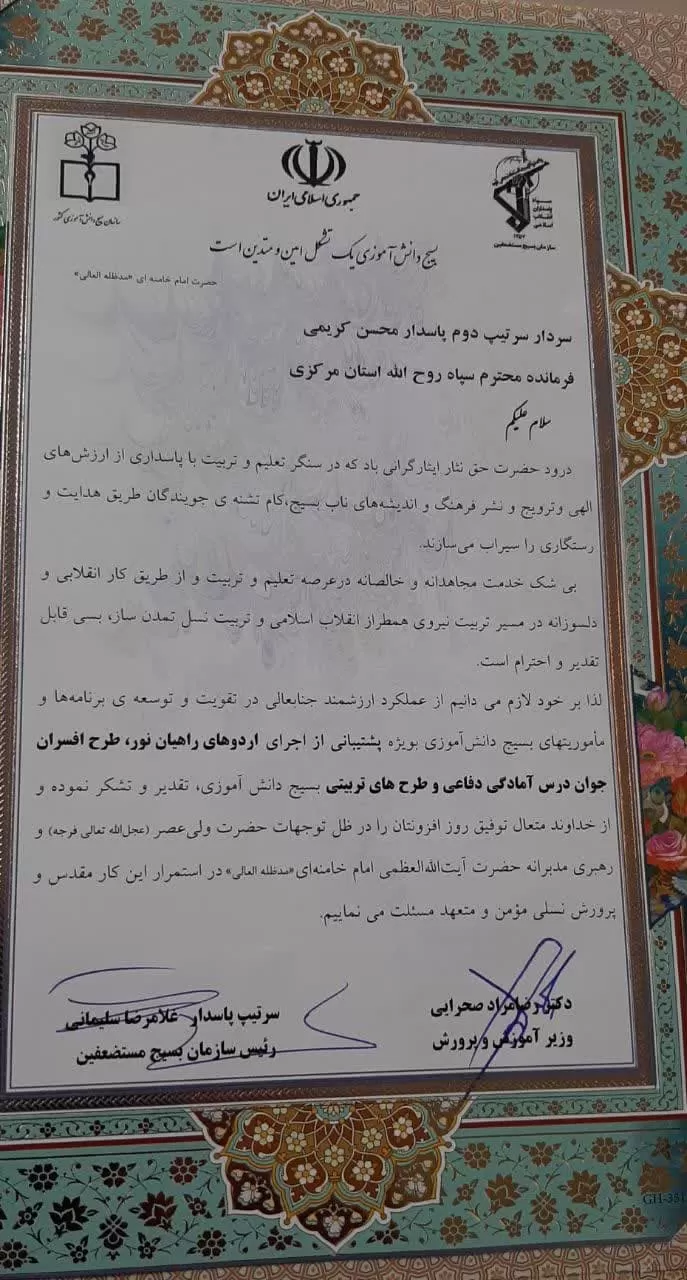 جمهوری اسلامی ایران
سازمان بسیج دانش‌آموزی کشور
سپاه
پاسداران
انقلاب
اسلامی
سازمان بسیج مستضعفین
بسیج دانش‌آموزی یک تشکل امین و متدین است
حضرت امام خامنه ای «مدظله العالی»
سردار سرتیپ دوم پاسدار محسن کریمی
فرمانده محترم سپاه روح الله استان مرکزی
سلام علیکم
درود حضرت حق نثار ایثارگرانی باد که در سنگر تعلیم و تربیت با پاسداری از ارزش‌های
الهی وترویج و نشر فرهنگ و اندیشه‌های ناب بسیج،کام تشنه ی جویندگان طریق هدایت و
رستگاری را سیراب می‌سازند.
بی شک خدمت مجاهدانه و خالصانه درعرصه تعلیم و تربیت و از طریق کار انقلابی و
دلسوزانه در مسیر تربیت نیروی همطراز انقلاب اسلامی و تربیت نسل تمدن ساز، بسی قابل
تقدیر و احترام است.
لذا بر خود لازم می دانیم از عملکرد ارزشمند جنابعالی در تقویت و توسعه ی برنامه‌ها و
مأموریتهای بسیج دانش‌آموزی بویژه پشتیبانی از اجرای اردوهای راهیان نور، طرح افسران
جوان درس آمادگی دفاعی و طرح های تربیتی بسیج دانش آموزی، تقدیر و تشکر نموده و
از خداوند متعال توفیق روز افزونتان را در ظل توجهات حضرت ولی‌عصر (عجل‌الله تعالی فرجه) و
رهبری مدبرانه حضرت آیت‌الله‌العظمی امام خامنه‌ای«مدظله العالی» در استمرار این کار مقدس و
پرورش نسلی مؤمن و متعهد مسئلت می نماییم.
دکتر رضامراد صحرایی
وزیر آموزش و پرورش
سرتیپ پاسدار غلامرضا سلیمانی
رئیس سازمان بسیج مستضعفین